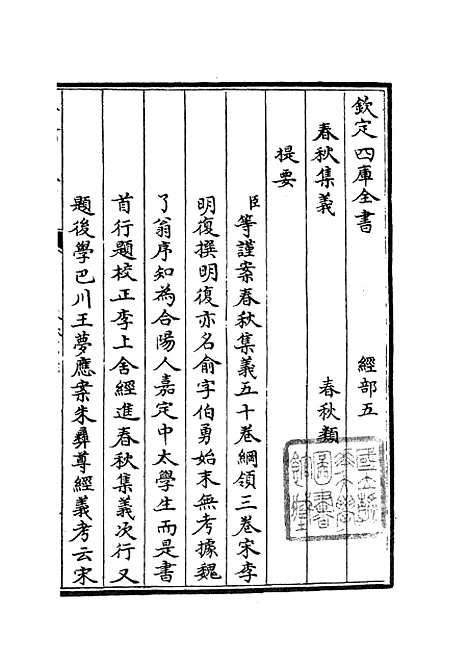 欽定四庫全書　經部五
春秋集義　春秋類
提要
臣等謹案春秋集義五十卷綱領三卷宋李
明復撰明復亦名俞字伯勇始末無考據魏
了翁序知為合陽人嘉定中太學生而是書
首行題校正李上舍經進春秋集義次行又
題後學巴川王夢應案朱彝尊經義考云宋